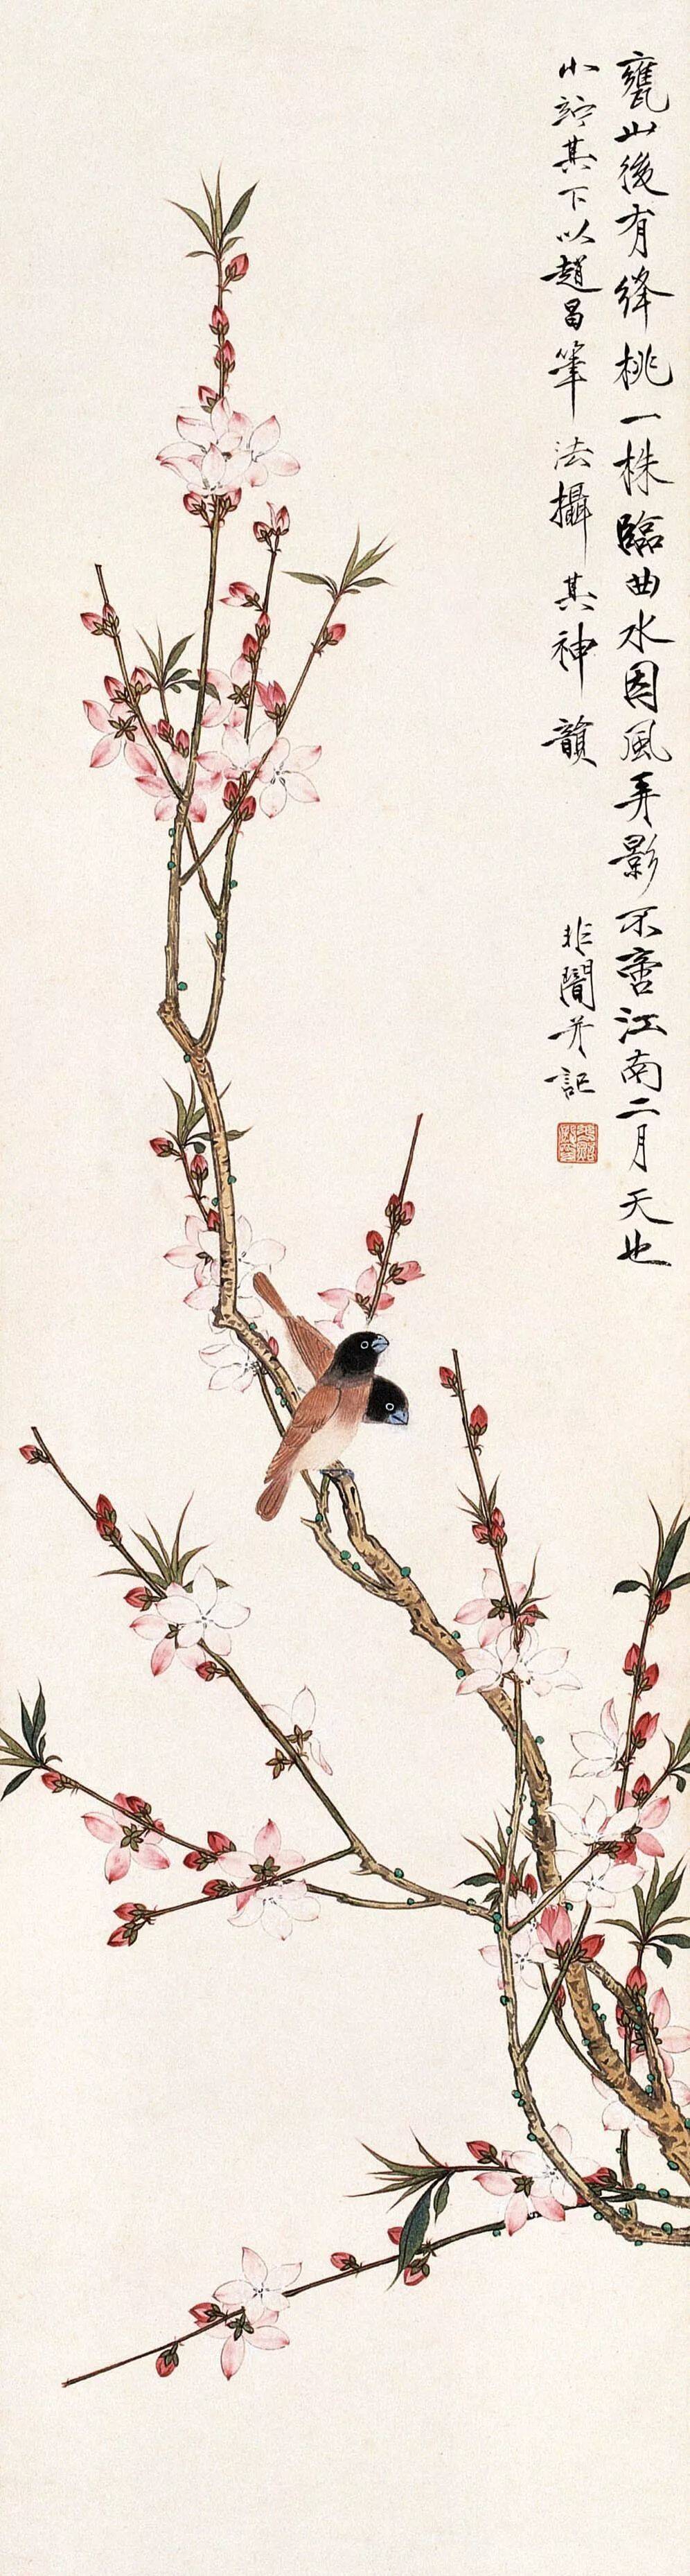 甕山後有絳桃一株臨曲水因風弄影不啻江南二月天也
小竚其下以趙昌筆法攝其神韻
非闇并記